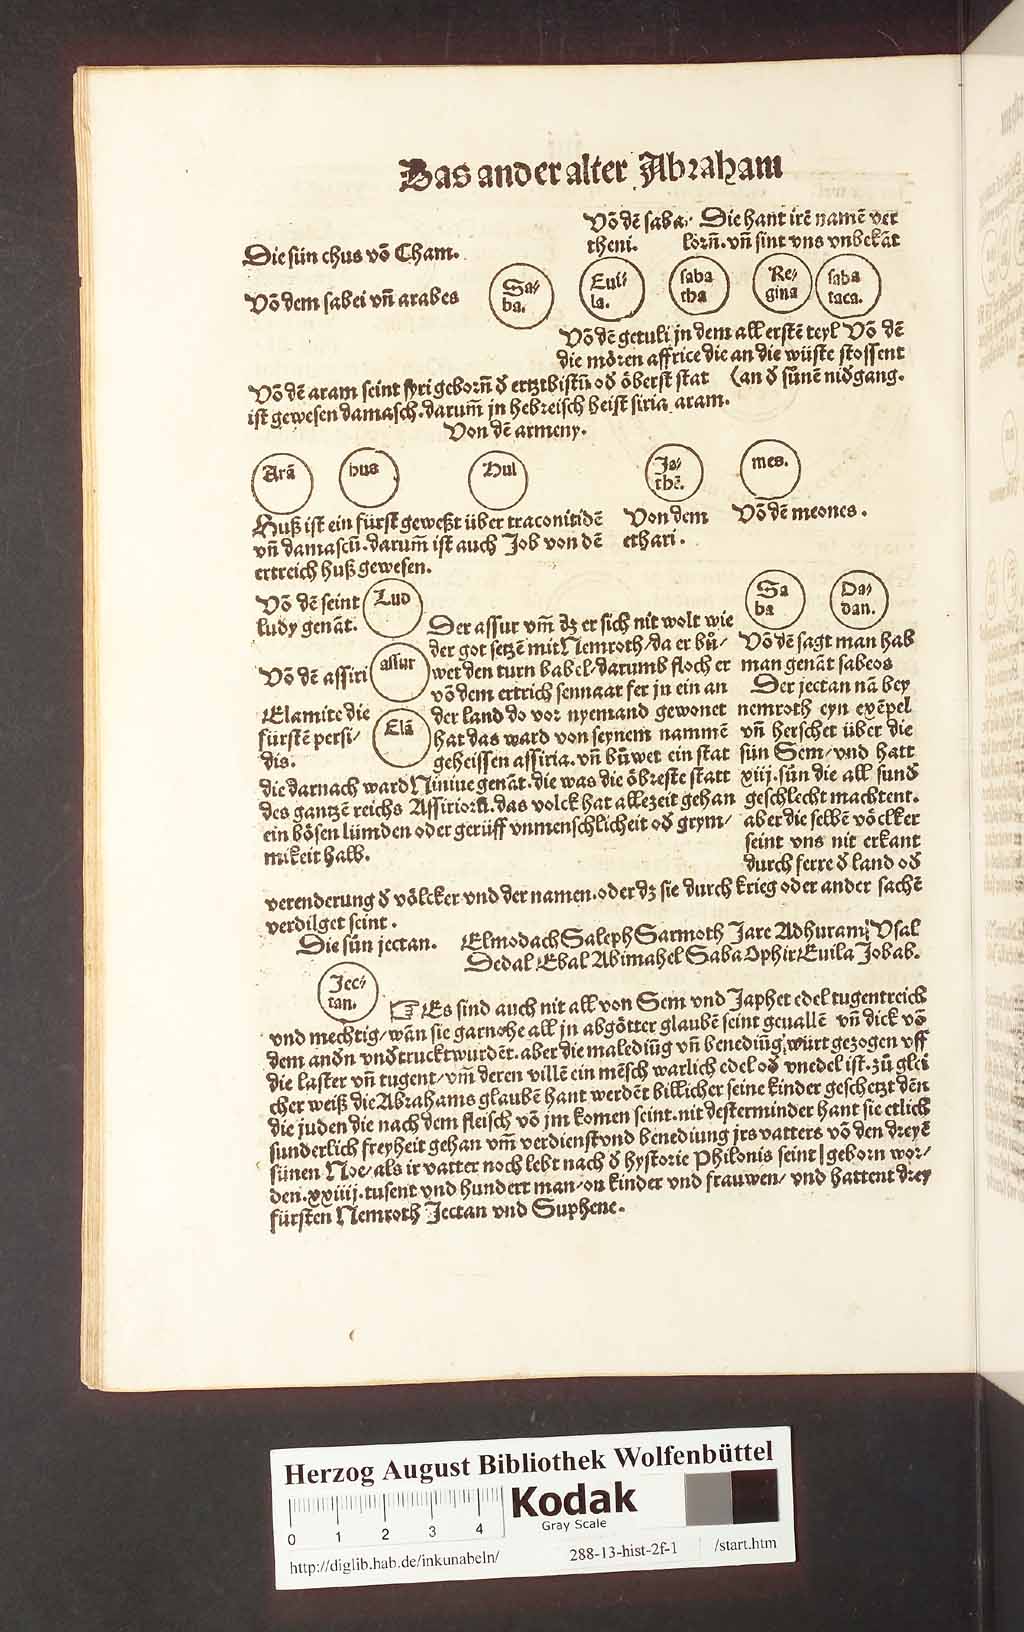 Das ander alter Abraham
Die sün chus võ Cham.
Võ dẽ saba. Die hant irẽ namẽ ver
theni. lorñ. vñ sint vns vnbekãt
Võ dem sabei vñ arabes
Sa/
ba.
Euil/
la.
saba
tha
Re/
gina
saba
taca.
Võ dẽ getuli jn dem all erstẽ teyl Võ dẽ
die mören affrice die an die wüste stossent
Võ dẽ aram seint syri geborñ d̕ ertztbistũ od̕ öberst stat (an d̕ sũnẽ nid̕gang.
ist gewesen damasch. darum̃ jn hebreisch heist siria aram.
Von dẽ armeny.
Arã
hus
Hul
Je/
thẽ.
mes.
Huß ist ein fürst geweßt über traconitidẽ
vñ damascũ. darum̃ ist auch Job von dẽ
ertreich huß gewesen.
Von dem
ethari.
Võ dẽ meones.
Võ dẽ seint
ludy genãt.
Lud
Võ dẽ assiri
assur
Elamite die
fürstẽ persi/
dis.
Elã
Der assur vm̃ dz er sich nit wolt wie
der got setzẽ mit Nemroth/da er bů/
wet den turn babel/darumb floch er
võ dem ertrich sennaar fer jn ein an
der land do vor nyemand gewonet
hat das ward von seynem nammẽ
geheissen assiria. vñ bůwet ein stat
die darnach ward Niniue genãt. die was die öbreste statt
des gantzẽ reichs Assiriorũ. das volck hat allezeit gehan
ein bösen lümden oder gerüff vnmenschlicheit od̕ grym/
mikeit halb.
Sa
ba
Da/
dan.
Võ dẽ sagt man hab
man genãt sabeos
Der jectan nã bey
nemroth eyn exẽpel
vñ herschet über die
sün Sem/vnd hatt
xiij. sün die all sund̕
geschlecht machtent.
aber die selbẽ völcker
seint vns nit erkant
durch ferre d̕ land od̕
verenderung d̕ völcker vnd der namen. oder dz sie durch krieg oder ander sachẽ
verdilget seint.
Die sün jectan. Elmodach Saleph Sarmoth Jare Adhuram Vsal
Dedal Ebal Abimahel Saba Ophir Euila Jobab.
Jec/
tan.
☞ Es sind auch nit all von Sem vnd Japhet edel tugentreich
vnd mechtig/wãn sie garnohe all jn abgötter glaubẽ seint geuallẽ vñ dick võ
dem and̕n vnd̕truckt wurdẽt. aber die malediũg vñ benediũg würt gezogen vff
die laster vñ tugent/vm̃ deren villẽ ein mẽsch warlich edel od̕ vnedel ist. zů glei
cher weiß die Abrahams glaubẽ hant werdẽt billicher seine kinder geschetzt dẽn
die juden die nach dem fleisch võ jm komen seint. nit desterminder hant sie etlich
sunderlich freyheit gehan vm̃ verdienst vnd benediung jrs vatters võ den dreyẽ
sünen Noe/als ir vatter noch lebt nach d̕ hystorie Philonis seint geborn wor/
den. xxiiij. tusent vnd hundert man/on kinder vnd frauwen/vnd hattent drey
fürsten Nemroth Jectan vnd Suphene.
Herzog August Bibliothek Wolfenbüttel
0 1 2 3 4
Kodak
Gray Scale
http://diglib.hab.de/inkunabeln/ 288-13-hist-2f-1 /start.htm